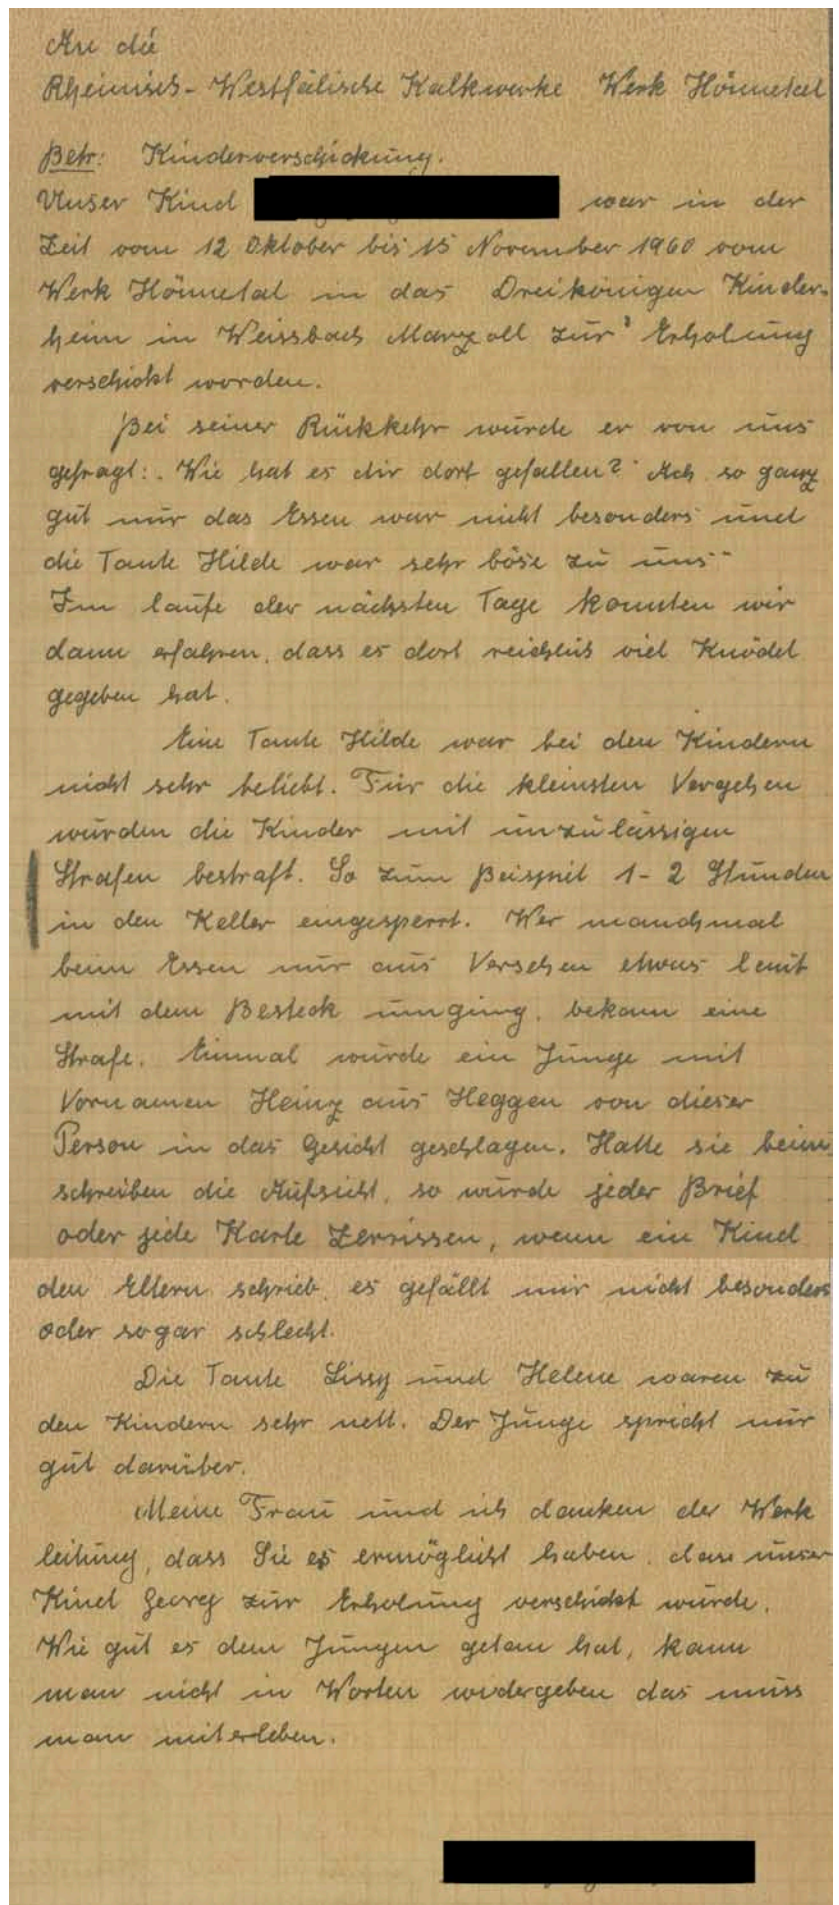 An die
Rheinisch-Westfälische Kalkwerke Werk Hönnetal
Betr: Kinderverschickung.
Unser Kind war in der
Zeit vom 12 Oktober bis 15 November 1960 vom
Werk Hönnetal in das Dreikönigen Kinder-
heim in Weissbach Marzoll zur Erholung
verschickt worden.
Bei seiner Rückkehr wurde er von uns
gefragt: "Wie hat es dir dort gefallen?" Ach so ganz
gut nur das Essen war nicht besonders und
die Tante Hilde war sehr böse zu uns"
Im laufe der nächsten Tage konnten wir
dann erfahren, dass es dort reichlich viel Knödel
gegeben hat.
Eine Tante Hilde war bei den Kindern
nicht sehr beliebt. Für die kleinsten Vergehen
wurden die Kinder mit unzulässigen
Strafen bestraft. So zum Beispiel 1-2 Stunden
in den Keller eingesperrt. Wer manchmal
beim Essen nur aus Versehen etwas laut
mit dem Besteck umging, bekam eine
Strafe. Einmal wurde ein Junge mit
Vornamen Heinz aus Heggen von dieser
Person in das Gesicht geschlagen. Hatte sie beim
schreiben die Aufsicht, so wurde jeder Brief
oder jede Karte zerrissen, wenn ein Kind
den Eltern schrieb, es gefällt mir nicht besonders
oder sogar schlecht.
Die Tante Lissy und Helene waren zu
den Kindern sehr nett. Der Junge spricht nur
gut darüber.
Meine Frau und ich danken der Werk
leitung, dass Sie es ermöglicht haben, dass unser
Kind Georg zur Erholung verschickt wurde.
Wie gut es dem Jungen getan hat, kann
man nicht in Worten widergeben das muss
man miterleben.